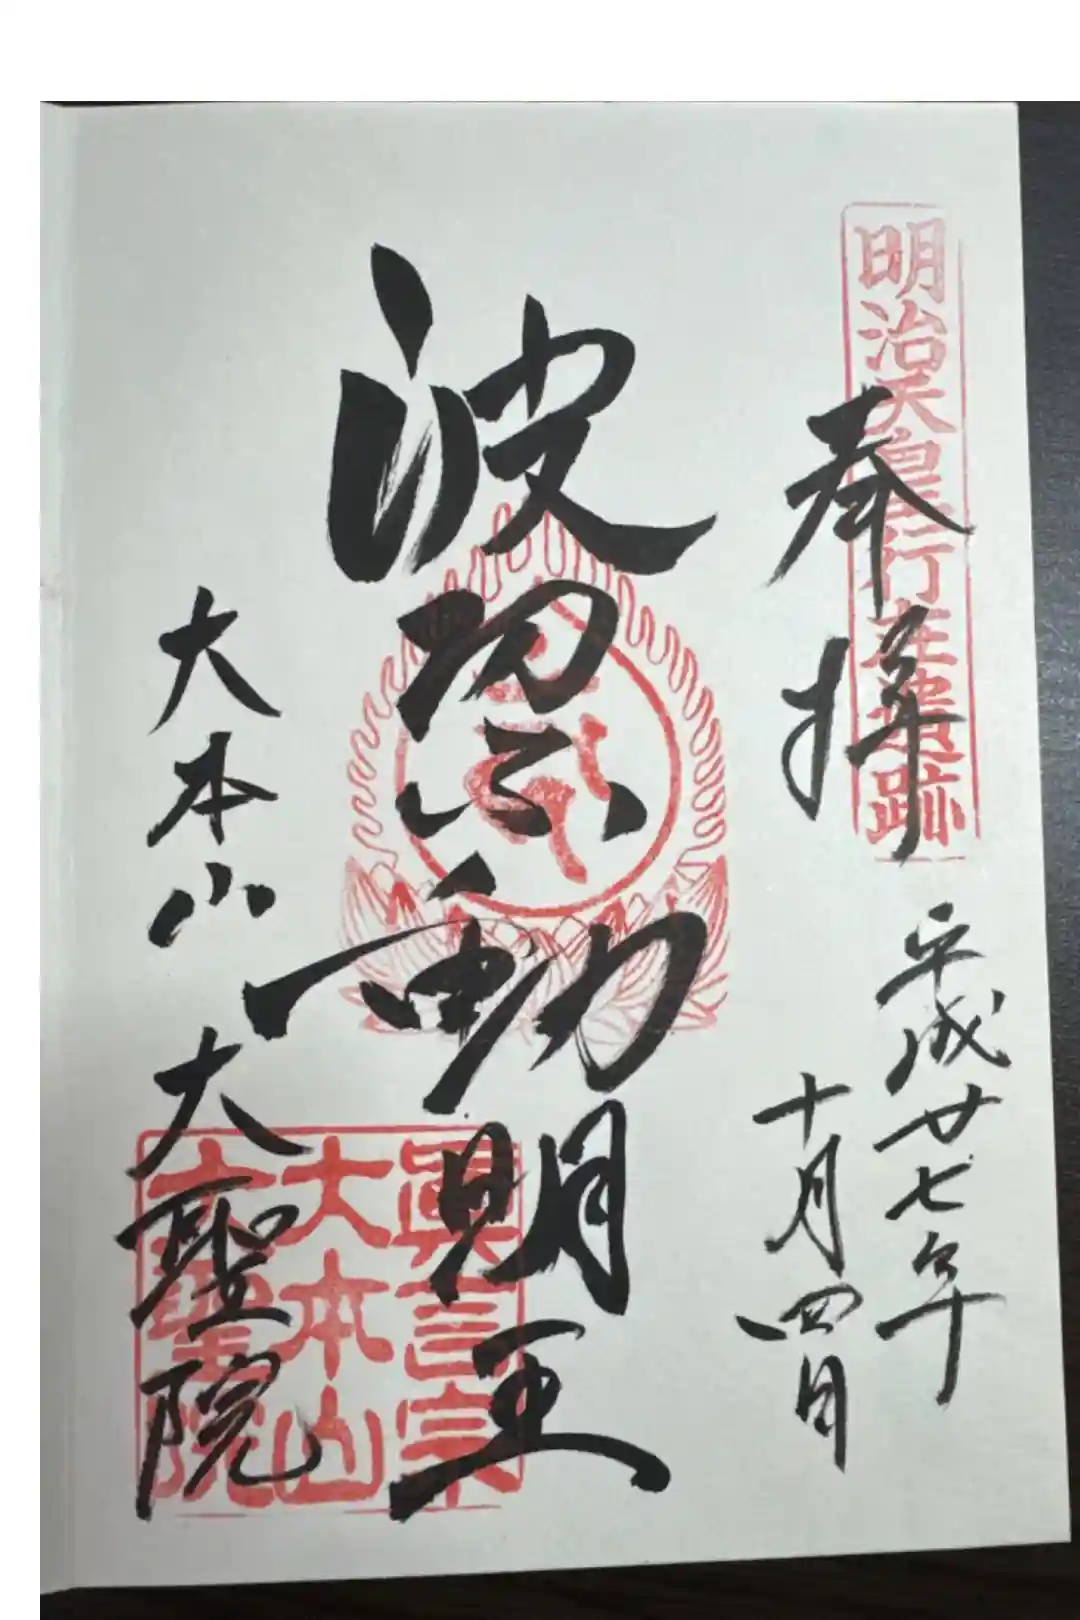 明治天皇行在遺跡
奉拝
平成廿七年
十月四日
波切不動明王
大本山
大聖院
眞言宗
大本山
大聖院